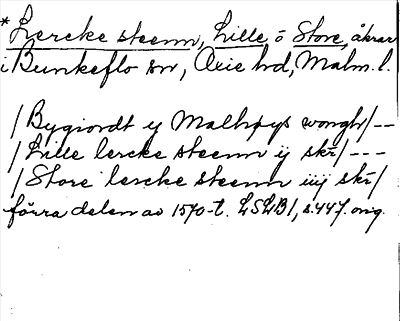 *Lercke steenn, Lille o Store, åkrar
i Bunkeflo sn, Oxie hd, Malm. l.
/Bygiordt ij Malhøys wongh/--
/Lille lercke steenn ij skr/---
/Store lercke steenn iiij skr/
förra delen av 1570-t. LSLB1, s.447. orig.